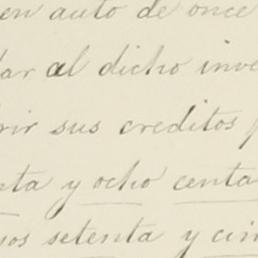 en auto de once
dar al dicho inve
rir sus creditos p
nta y ocho centa
sos setenta y cin